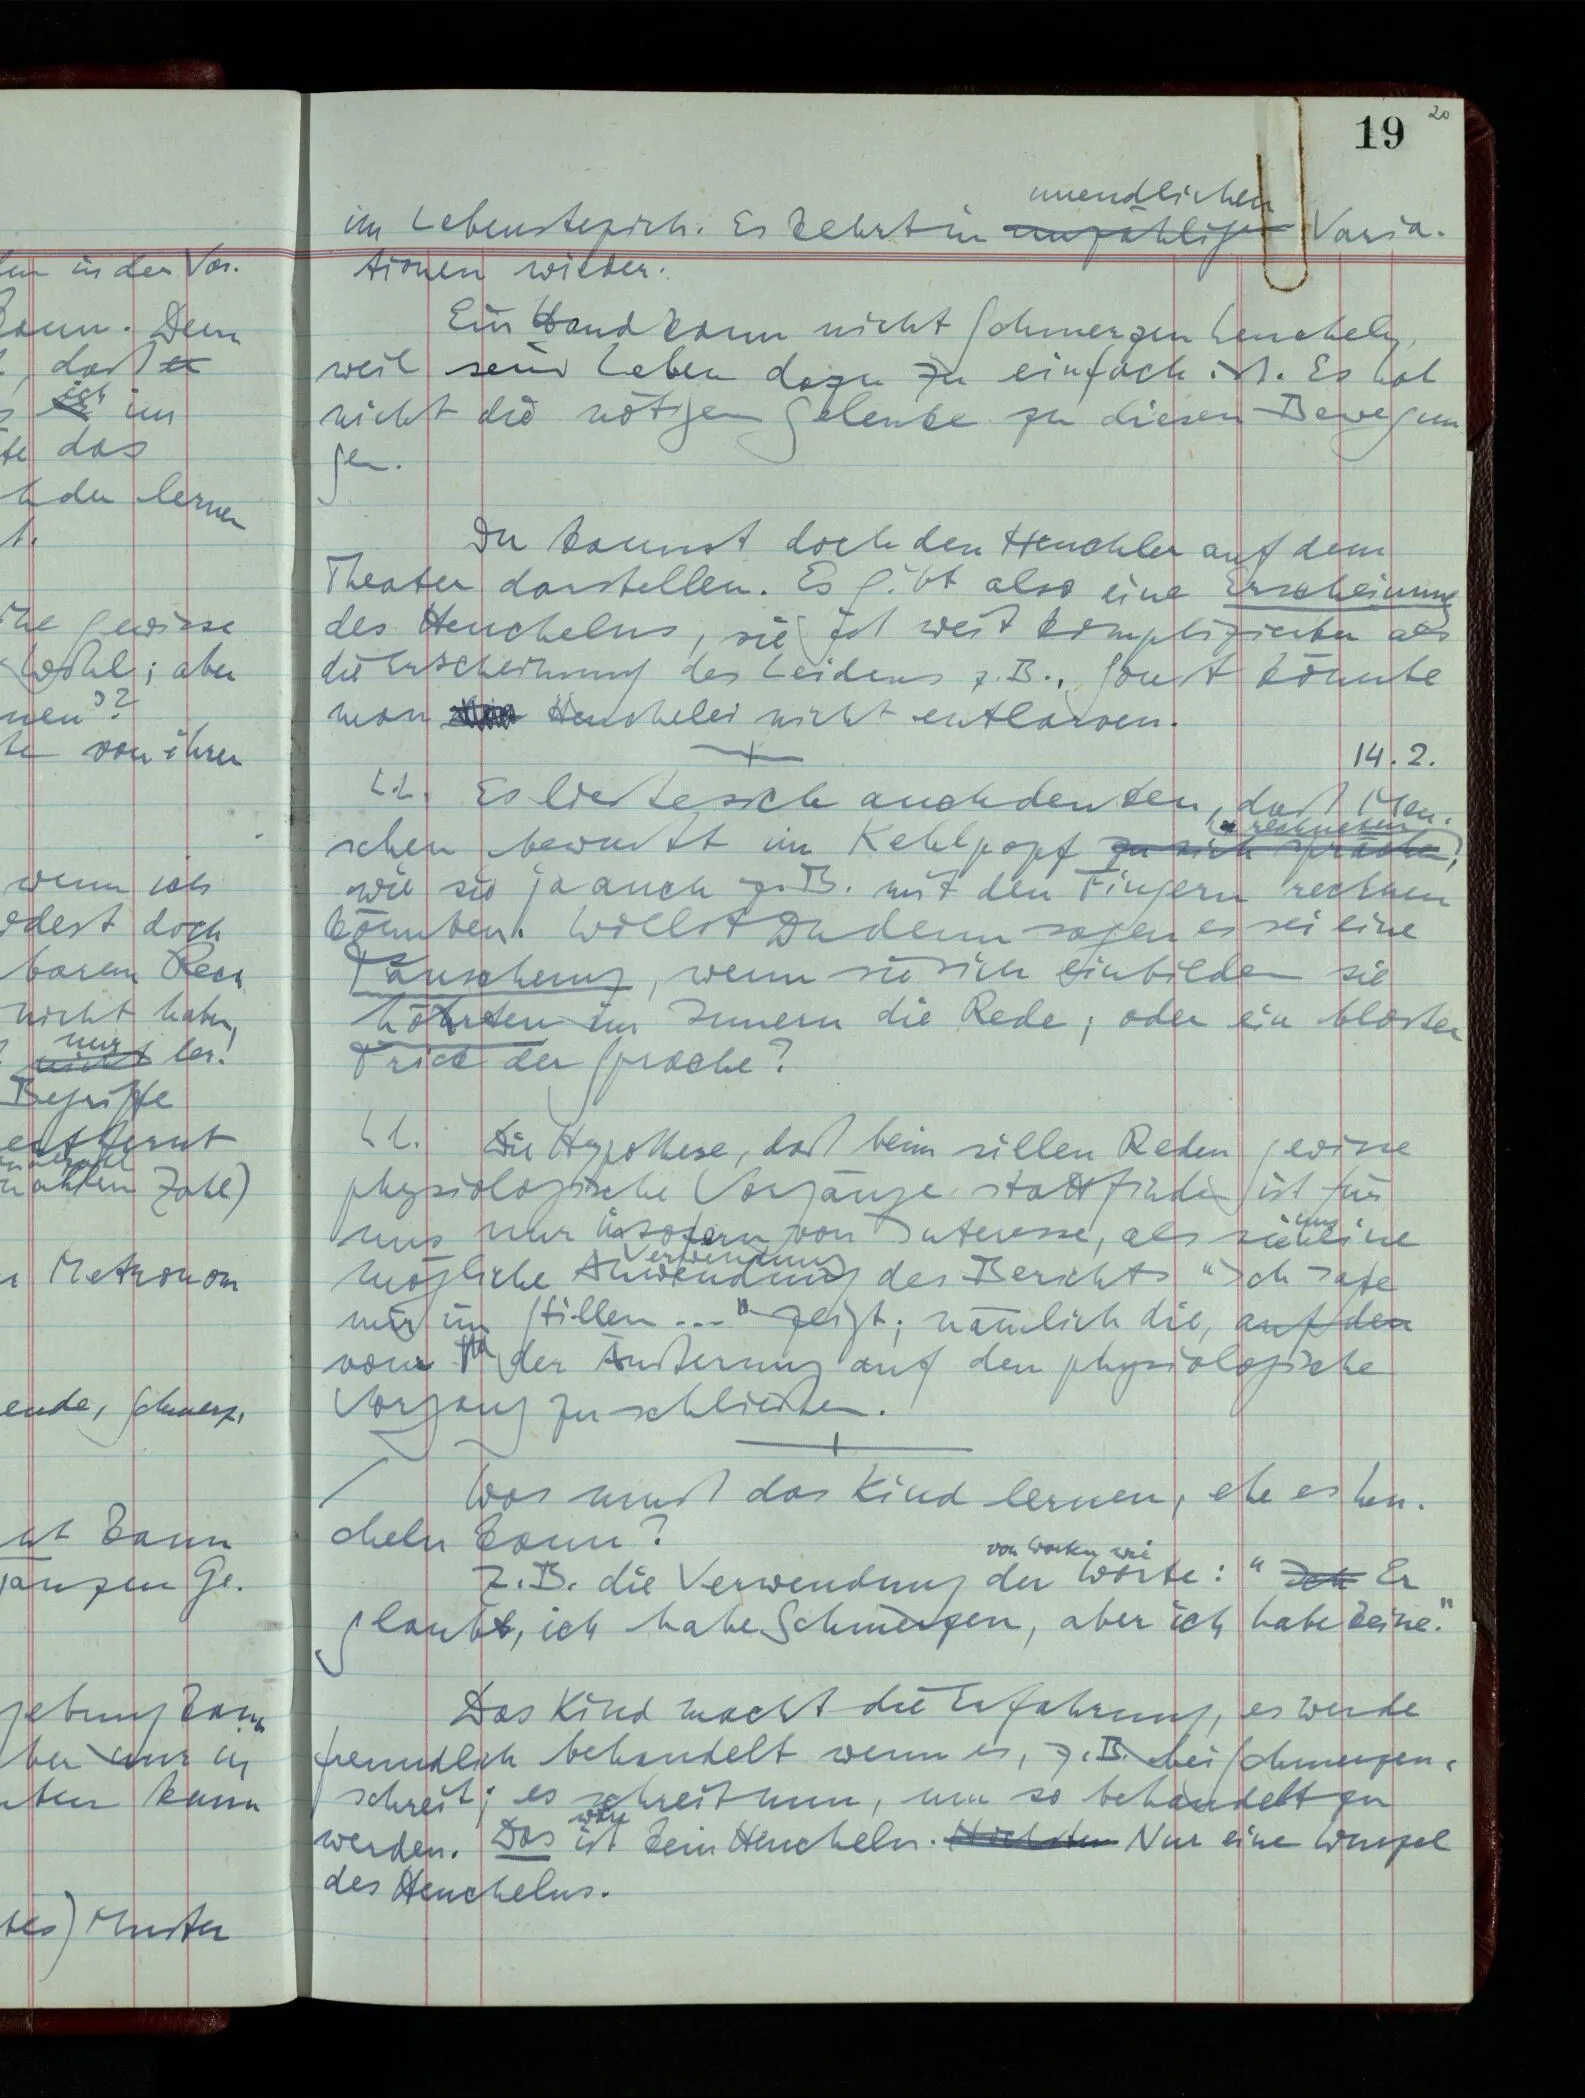 19
20
unendlichen
im Lebensteppich. Es kehrt in unzähligen Varia-
tionen wieder.
Ein Hund kann nicht Schmerzen heucheln,
weil sein Leben dazu zu einfach ist. Es hat
nicht die nötigen Gelenke zu diesen Bewegun
gen.
Du kannst doch den Heuchler auf dem
Theater darstellen. Es gibt also eine Erscheinung
des Heuchelns, sie ist weit komplizierter als
die Erscheinung des Leidens z.B., sonst könnte
man Heuchelei nicht entlarven.
14.2.
Es ließe sich auch denken, daß Men-
rechneten
schen bewußt im Kehlpopf zu sich sprächen,
wie sie ja auch z.B. mit den Fingern rechnen
könnten. Willst Du denn sagen es sei eine
Täuschung, wenn sie sich einbilden sie
hörten im Innern die Rede; oder ein bloßer
Trick der Sprache?
Die Hypothese, daß beim stillen Reden gewisse
physiologische Vorgänge stattfinden ist für
uns nur insofern von Interesse, als sie uns eine
Verwendung
mögliche Anwendung des Berichts "Ich sage
mir im Stillen ..." zeigt; nämlich die, auf den
von der Äußerung auf den physiologische
Vorgang zu schließen.
Was muß das Kind lernen, ehe es heu-
cheln kann?
von Worten wie
Z.B. die Verwendung der Worte: "Ich Er
glaubt, ich habe Schmerzen, aber ich habe keine."
Das Kind macht die Erfahrung, es werde
freundlich behandelt wenn es, z.B. bei Schmerzen,
schreit; es schreit nun, um so behandelt zu
wäre
werden. Das ist kein Heucheln. Nur eine Wurzel
des Heuchelns.
in der Vor-
kann. Denn
, daß
ich
im
das
lernen
gewisse
wohl; aber
nen"?
von ihren
wenn ich
doch
baren
nicht haben,
nur
nicht
Begriffe
entfernt
Zahl)
Metronom
ende, Schmerz,
kann
ganzen Ge-
gebung kann
nur in
kann
Muster